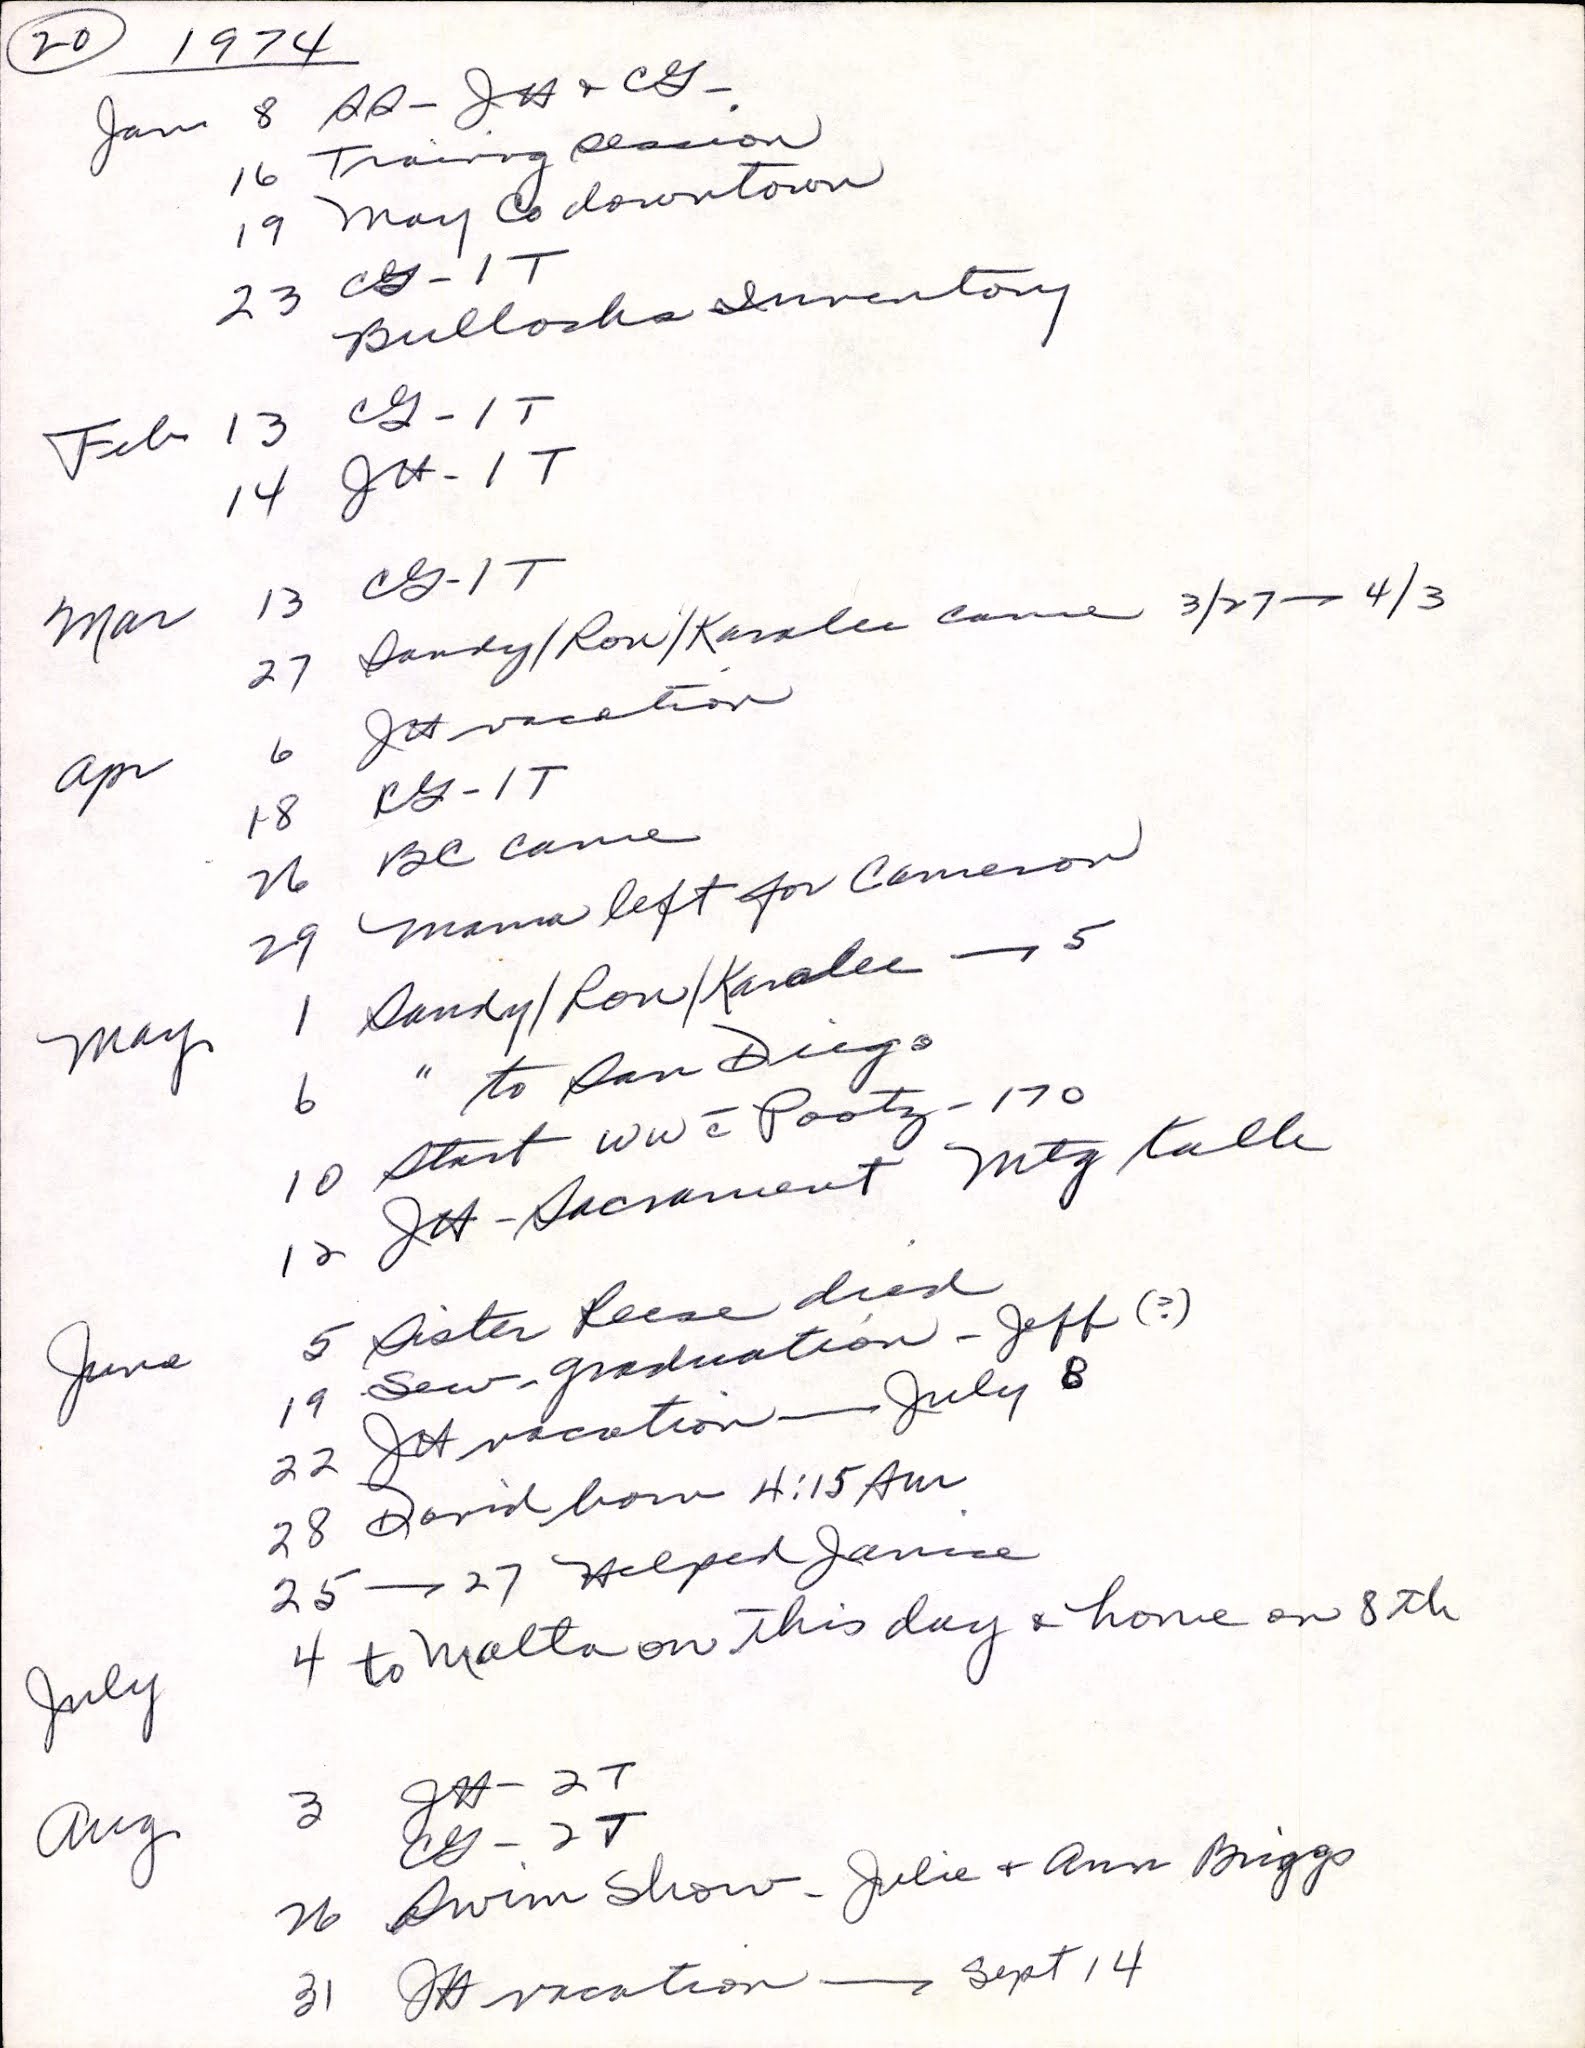 20 1974
Jan 8 SS - JH + CG -
16 Training session
19 May Co downtown
23 CG - 1 T
Bullocks Inventory
Feb 13 CG - 1 T
14 JH - 1 T
Mar 13 CG - 1 T
27 Sandy/Ron/Karalee came 3/27 → 4/3
Apr 6 JH vacation
18 CG - 1 T
26 BC came
29 Mama left for Cameron
May 1 Sandy/Ron/Karalee → 5
6 " to San Diego
10 Start WW c̄ Pootz - 170
12 JH - Sacrament Mtg talk
June 5 Sister Reese died
19 Sem. graduation - Jeff (?)
22 JH vacation → July 8
28 David born 4:15 AM
25 → 27 Helped Janice
July 4 to Malta on this day & home on 8th
Aug 3 JH - 2 T
CG - 2 T
26 Swim Show - Julie + Ann Briggs
31 JH vacation → Sept 14